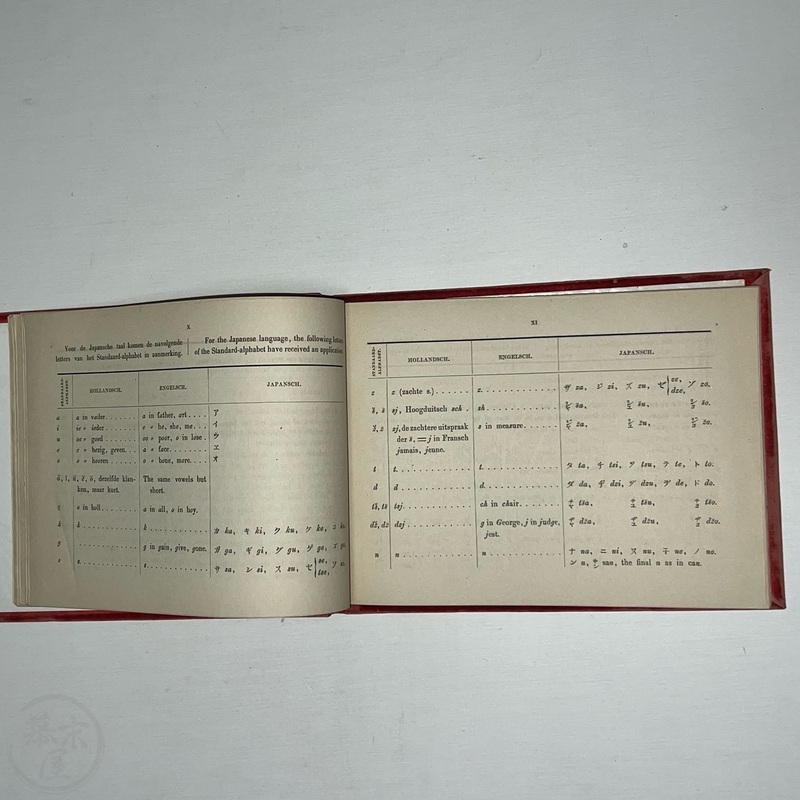 X
Voor de Japansche taal komen de navolgende
letters van het Standard-alphabet in aanmerking.
For the Japanese language, the following letters
of the Standard-alphabet have received an application
STANDAARD-ALPHABET. HOLLANDSCH. ENGELSCH. JAPANSCH.
a a in vader a in father, art ア
i ie » ieder e » he, she, me イ
u oe » goed oo » poor, o in lose ウ
e e » bezig, geven a » face エ
o o » hooren o » bone, more オ
ă, ĭ, ŭ, ĕ, ŏ, dezelfde klan-
ken, maar kort.
The same vowels but
short.
o in holl a in all, o in hoy.
k k k カ ka, キ ki, ク ku, ケ ke, コ
g g in gain, give, gone. ガ ga, ギ gi, グ gu, ゲ ge, ゴ
s s s サ sa, シ si, ス su, セ se, tse, ソ
XI
STANDAARD-ALPHABET. HOLLANDSCH. ENGELSCH. JAPANSCH.
z z (zachte s.) z ザ za, ジ zi, ズ zu, ゼ ze, dze, ゾ zo.
sj, Hoogduitsch sch sh シャ ša, シュ šu, ショ šo.
sj, de zachtere uitspraak s in measure ジャ ža, ジュ žu, ジョ žo.
der š, = j in Fransch
jamais, jeune.
t t t タ ta, チ tsi, ツ tsu, テ te, ト to.
d d d ダ da, ヂ dzi, ヅ dzu, デ de, ド do.
tš, tś tsj ch in chair チャ tša, チュ tšu, チョ tšo.
dž, dź dsj g in George, j in judge, ヂャ dža, ヂュ džu, ヂョ džo.
jest.
n n n ナ na, ニ ni, ヌ nu, ネ ne, ノ no.
ン n, サン san, the final n as in can.